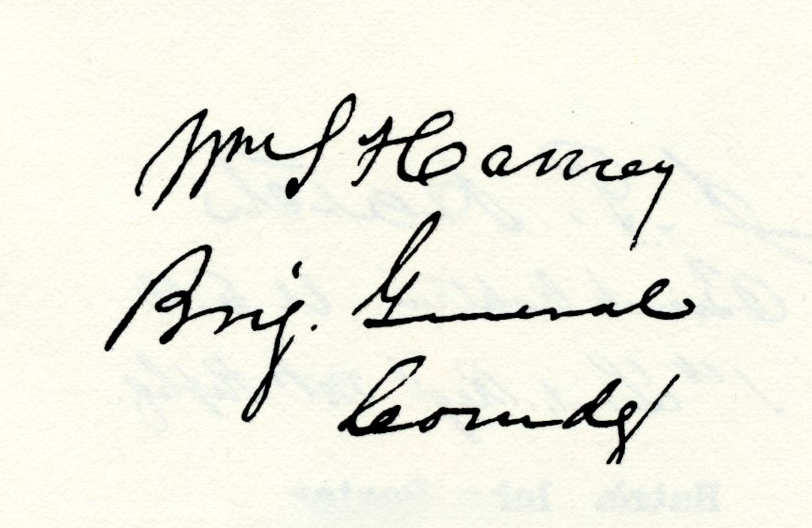 Wm S Harney
Brig. General
Comdg